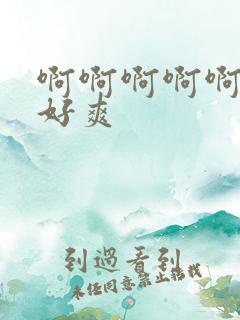 啊啊啊啊啊
好爽
到过看到
未经同意禁止转载